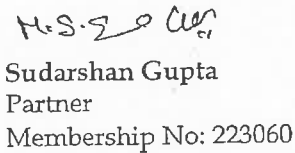 Sudarshan Gupta
Partner
Membership No: 223060